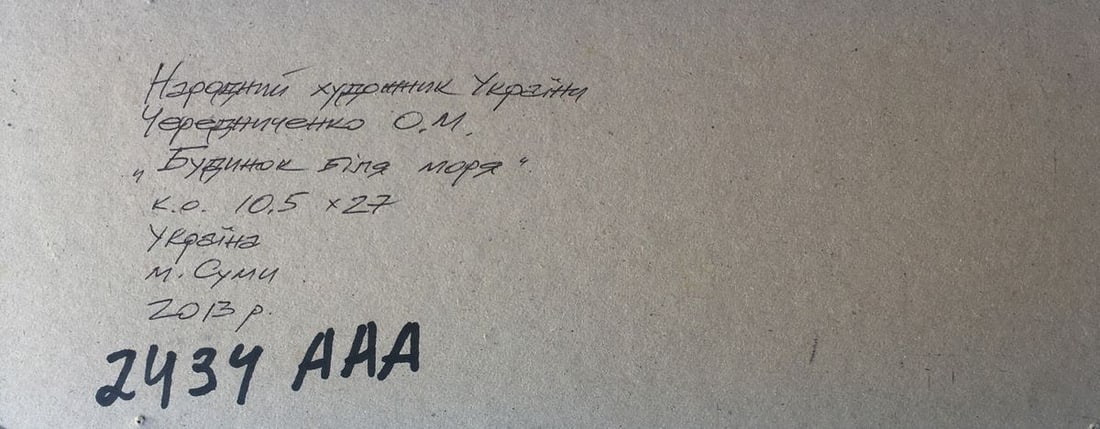 Народний художник України
Чередниченко О.М.
„Будинок біля моря“
к.о. 10.5 x 27
Україна
м. Суми
2013 р.
2434 ААА